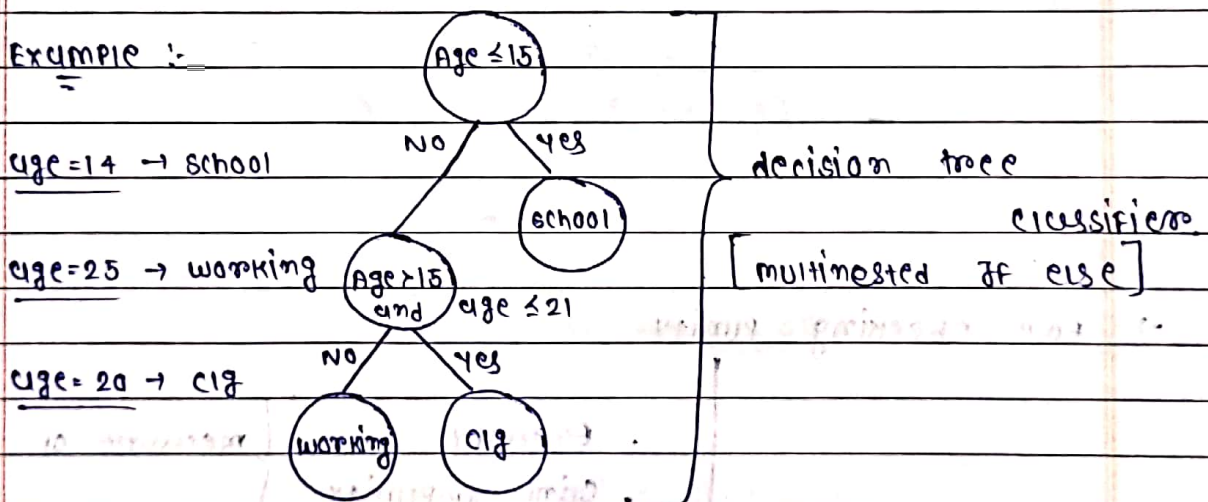 Example :-
Age ≤ 15
NO
yes
age = 14 → school
school
decision tree
classifier
[multinested If else]
age = 25 → working
Age > 15
and age ≤ 21
NO
yes
age = 20 → clg
working
clg